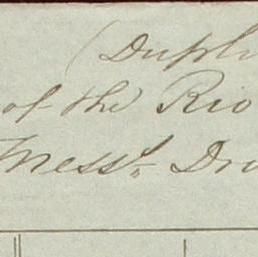 (Dupli
of the Rio
Mess.rs Dro